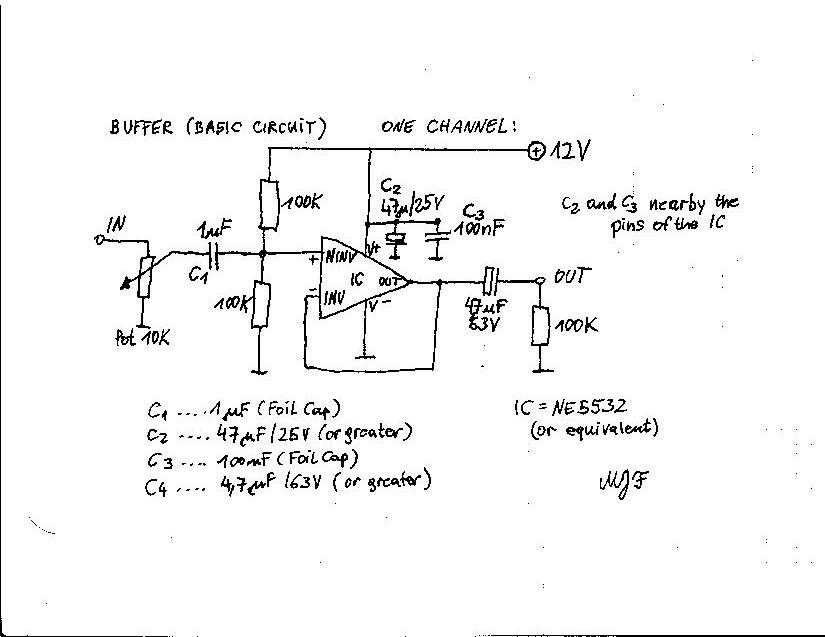 BUFFER (BASIC CIRCUIT) ONE CHANNEL:
+ 12V
100K
C2
47µ/25V
C3
100nF
C2 and C3 nearby the
pins of the IC
IN
1µF
C1
+ NINV V+
IC OUT
- INV
V-
100K
Pot 10K
47µF
63V
OUT
100K
C1 .... 1µF (Foil Cap)
C2 .... 47µF/25V (or greater)
C3 .... 100nF (Foil Cap)
C4 .... 4,7µF/63V (or greater)
IC = NE5532
(or equivalent)
MJF